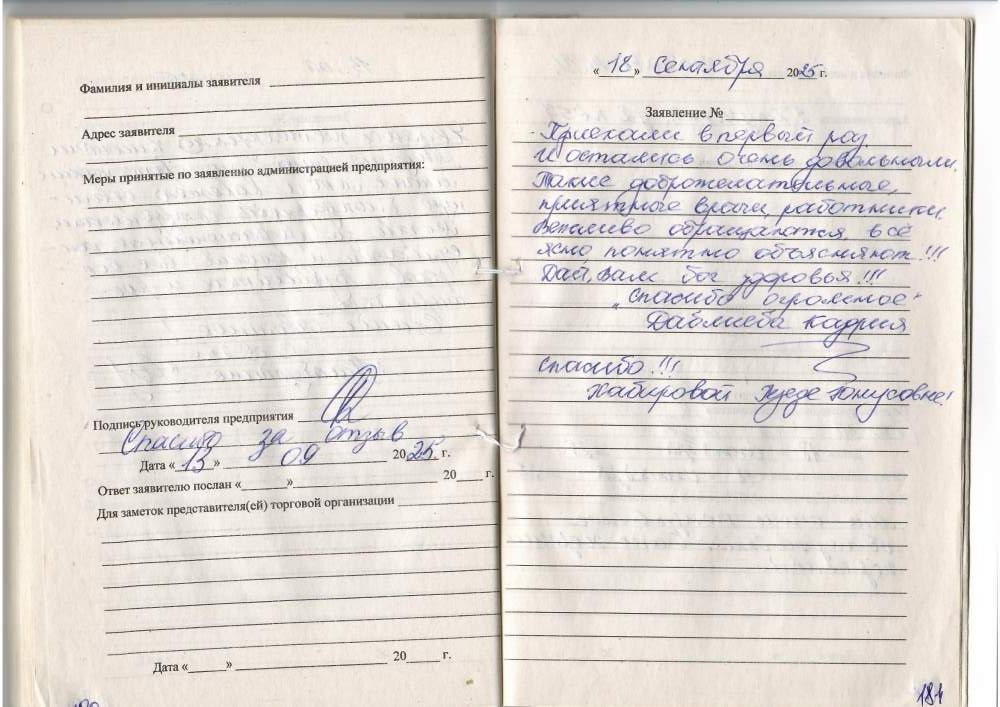 Фамилия и инициалы заявителя
Адрес заявителя
Меры принятые по заявлению администрацией предприятия:
Подпись руководителя предприятия
Спасибо за отзыв
Дата « 13 » 09 2025 г.
Ответ заявителю послан « » 20 г.
Для заметок представителя(ей) торговой организации
Дата « » 20 г.
« 18 » Сентября 2025 г.
Заявление №
Приехали впервый раз
и остались очень довольными.
Такие доброжелательные,
приятные врачи, работники.
Вежливо обращаются, всё
ясно понятно объясняют!!!
Дай, Вам бог здоровья!!!
"Спасибо огромное"
Кадрия
Спасибо!!!
Хабировой Юнусовне!
181